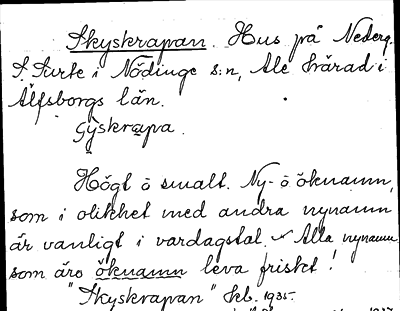 Skyskrapan. Hus på Nederg.
S. Surte i Nödinge s:n, Ale härad i
Älfsborgs län.
Sÿskrapa.
Högt o smalt. Ny- o öknamn,
som i olikhet med andra nynamn
är vanligt i vardagstal. Alla nynamn
som äro öknamn leva friskt!
"Skyskrapan" 1935.